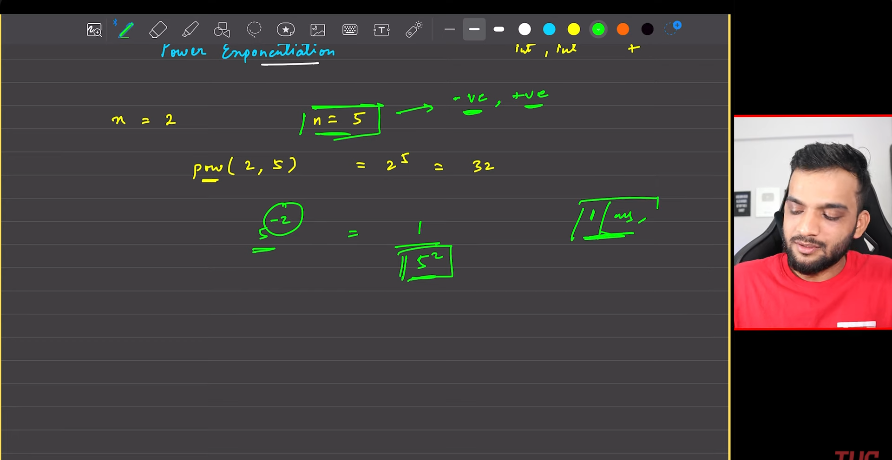 Power Exponentiation int, int +
n = 2 n = 5 → -ve, +ve
pow(2, 5) = 2⁵ = 32
5⁻² = 1/5² 1/ans,
TUF